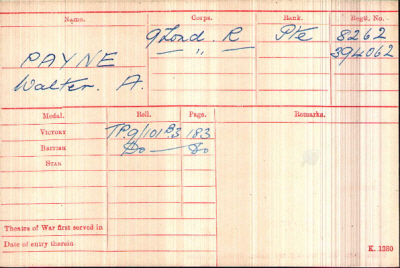 Name. Corps. Rank. Regtl. No.
9 Lond. R Pte 8262
PAYNE — " — 394062
Walter. A.
Medal. Roll. Page. Remarks.
VICTORY TP9/101B3 183
BRITISH Do — Do
STAR
Theatre of War first served in
Date of entry therein
K. 1380